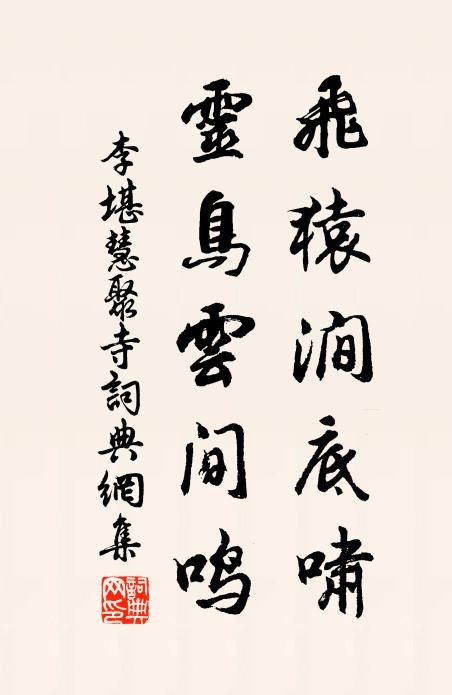 飛猿澗底嘯
靈鳥雲間鳴
李堪慧聚寺詞典網集
詞典网印